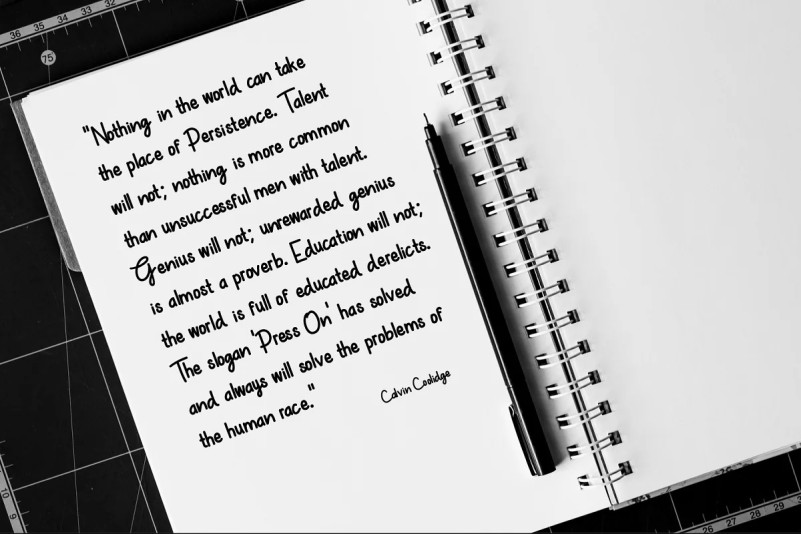 36 35 34 33 32
75
"Nothing in the world can take
the place of Persistence. Talent
will not; nothing is more common
than unsuccessful men with talent.
Genius will not; unrewarded genius
is almost a proverb. Education will not;
the world is full of educated derelicts.
The slogan 'Press On' has solved
and always will solve the problems of
the human race."
Calvin Coolidge
10
9
26 27 28 29